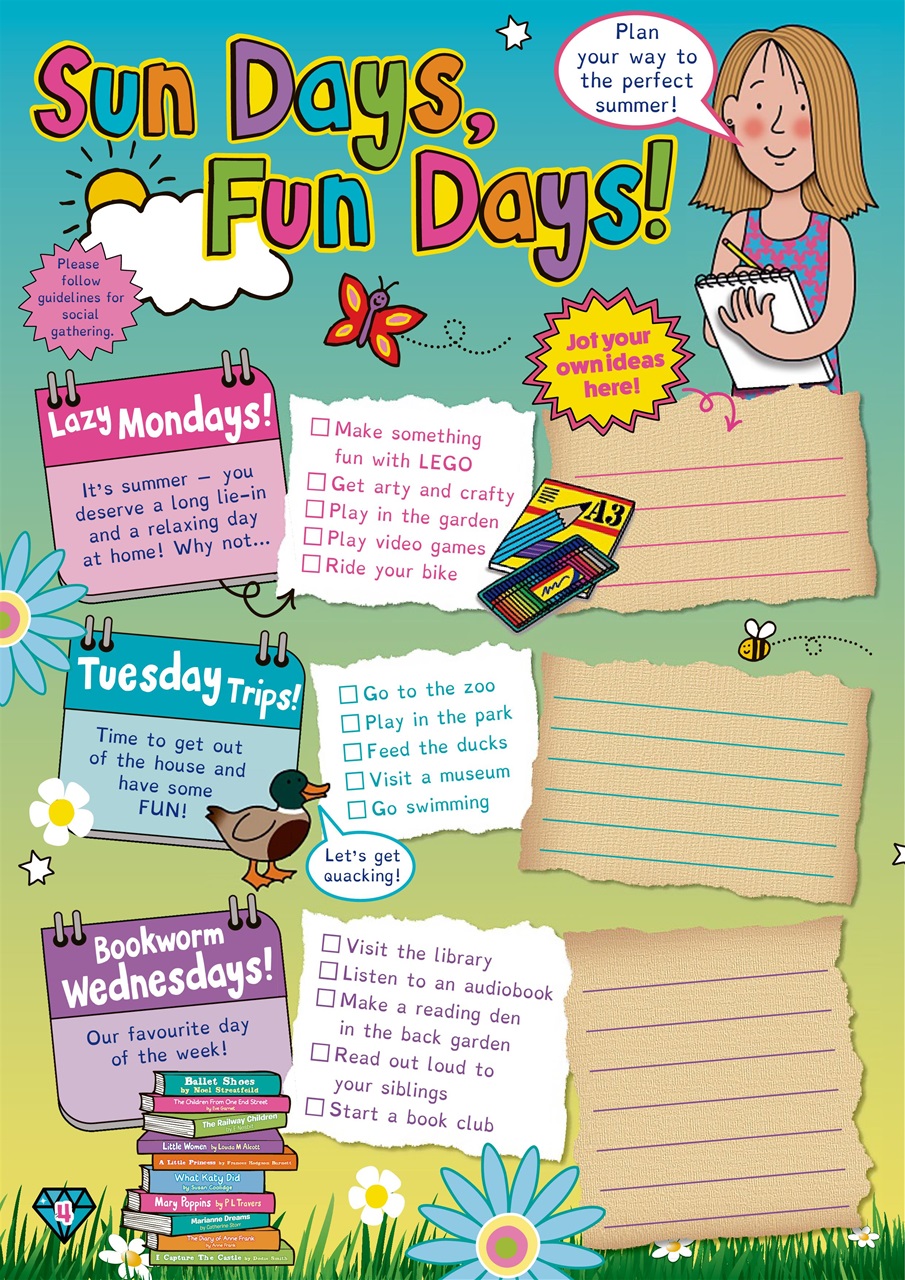 Sun Days,
Fun Days!
Plan
your way to
the perfect
summer!
Please
follow
guidelines for
social
gathering.
Jot your
own ideas
here!
Lazy Mondays!
It's summer – you
deserve a long lie-in
and a relaxing day
at home! Why not...
Make something
fun with LEGO
Get arty and crafty
Play in the garden
Play video games
Ride your bike
A3
Tuesday Trips!
Time to get out
of the house and
have some
FUN!
Go to the zoo
Play in the park
Feed the ducks
Visit a museum
Go swimming
Let's get
quacking!
Bookworm
Wednesdays!
Our favourite day
of the week!
Visit the library
Listen to an audiobook
Make a reading den
in the back garden
Read out loud to
your siblings
Start a book club
Ballet Shoes
by Noel Streatfeild
The Children From One End Street
by Eve Garnet
The Railway Children
Little Women by Louisa M Alcott
A Little Princess by Frances Hodgson Burnett
What Katy Did
by Susan Coolidge
Mary Poppins by P L Travers
Marianne Dreams
by Catherine Storr
The Diary of Anne Frank
by Anne Frank
I Capture The Castle by Dodie Smith
4